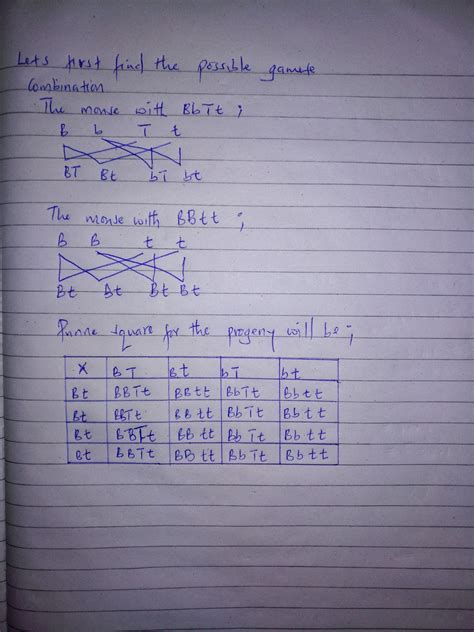 Lets first find the possible gamete
Combination
The mouse with BbTt ;
B b T t
BT Bt bT bt
The mouse with BBtt ;
B B t t
Bt Bt Bt Bt
Punne square for the progeny will be ;
X BT Bt bT bt
Bt BBTt BBtt BbTt Bbtt
Bt BBTt BBtt BbTt Bbtt
Bt BBTt BBtt BbTt Bbtt
Bt BBTt BBtt BbTt Bbtt